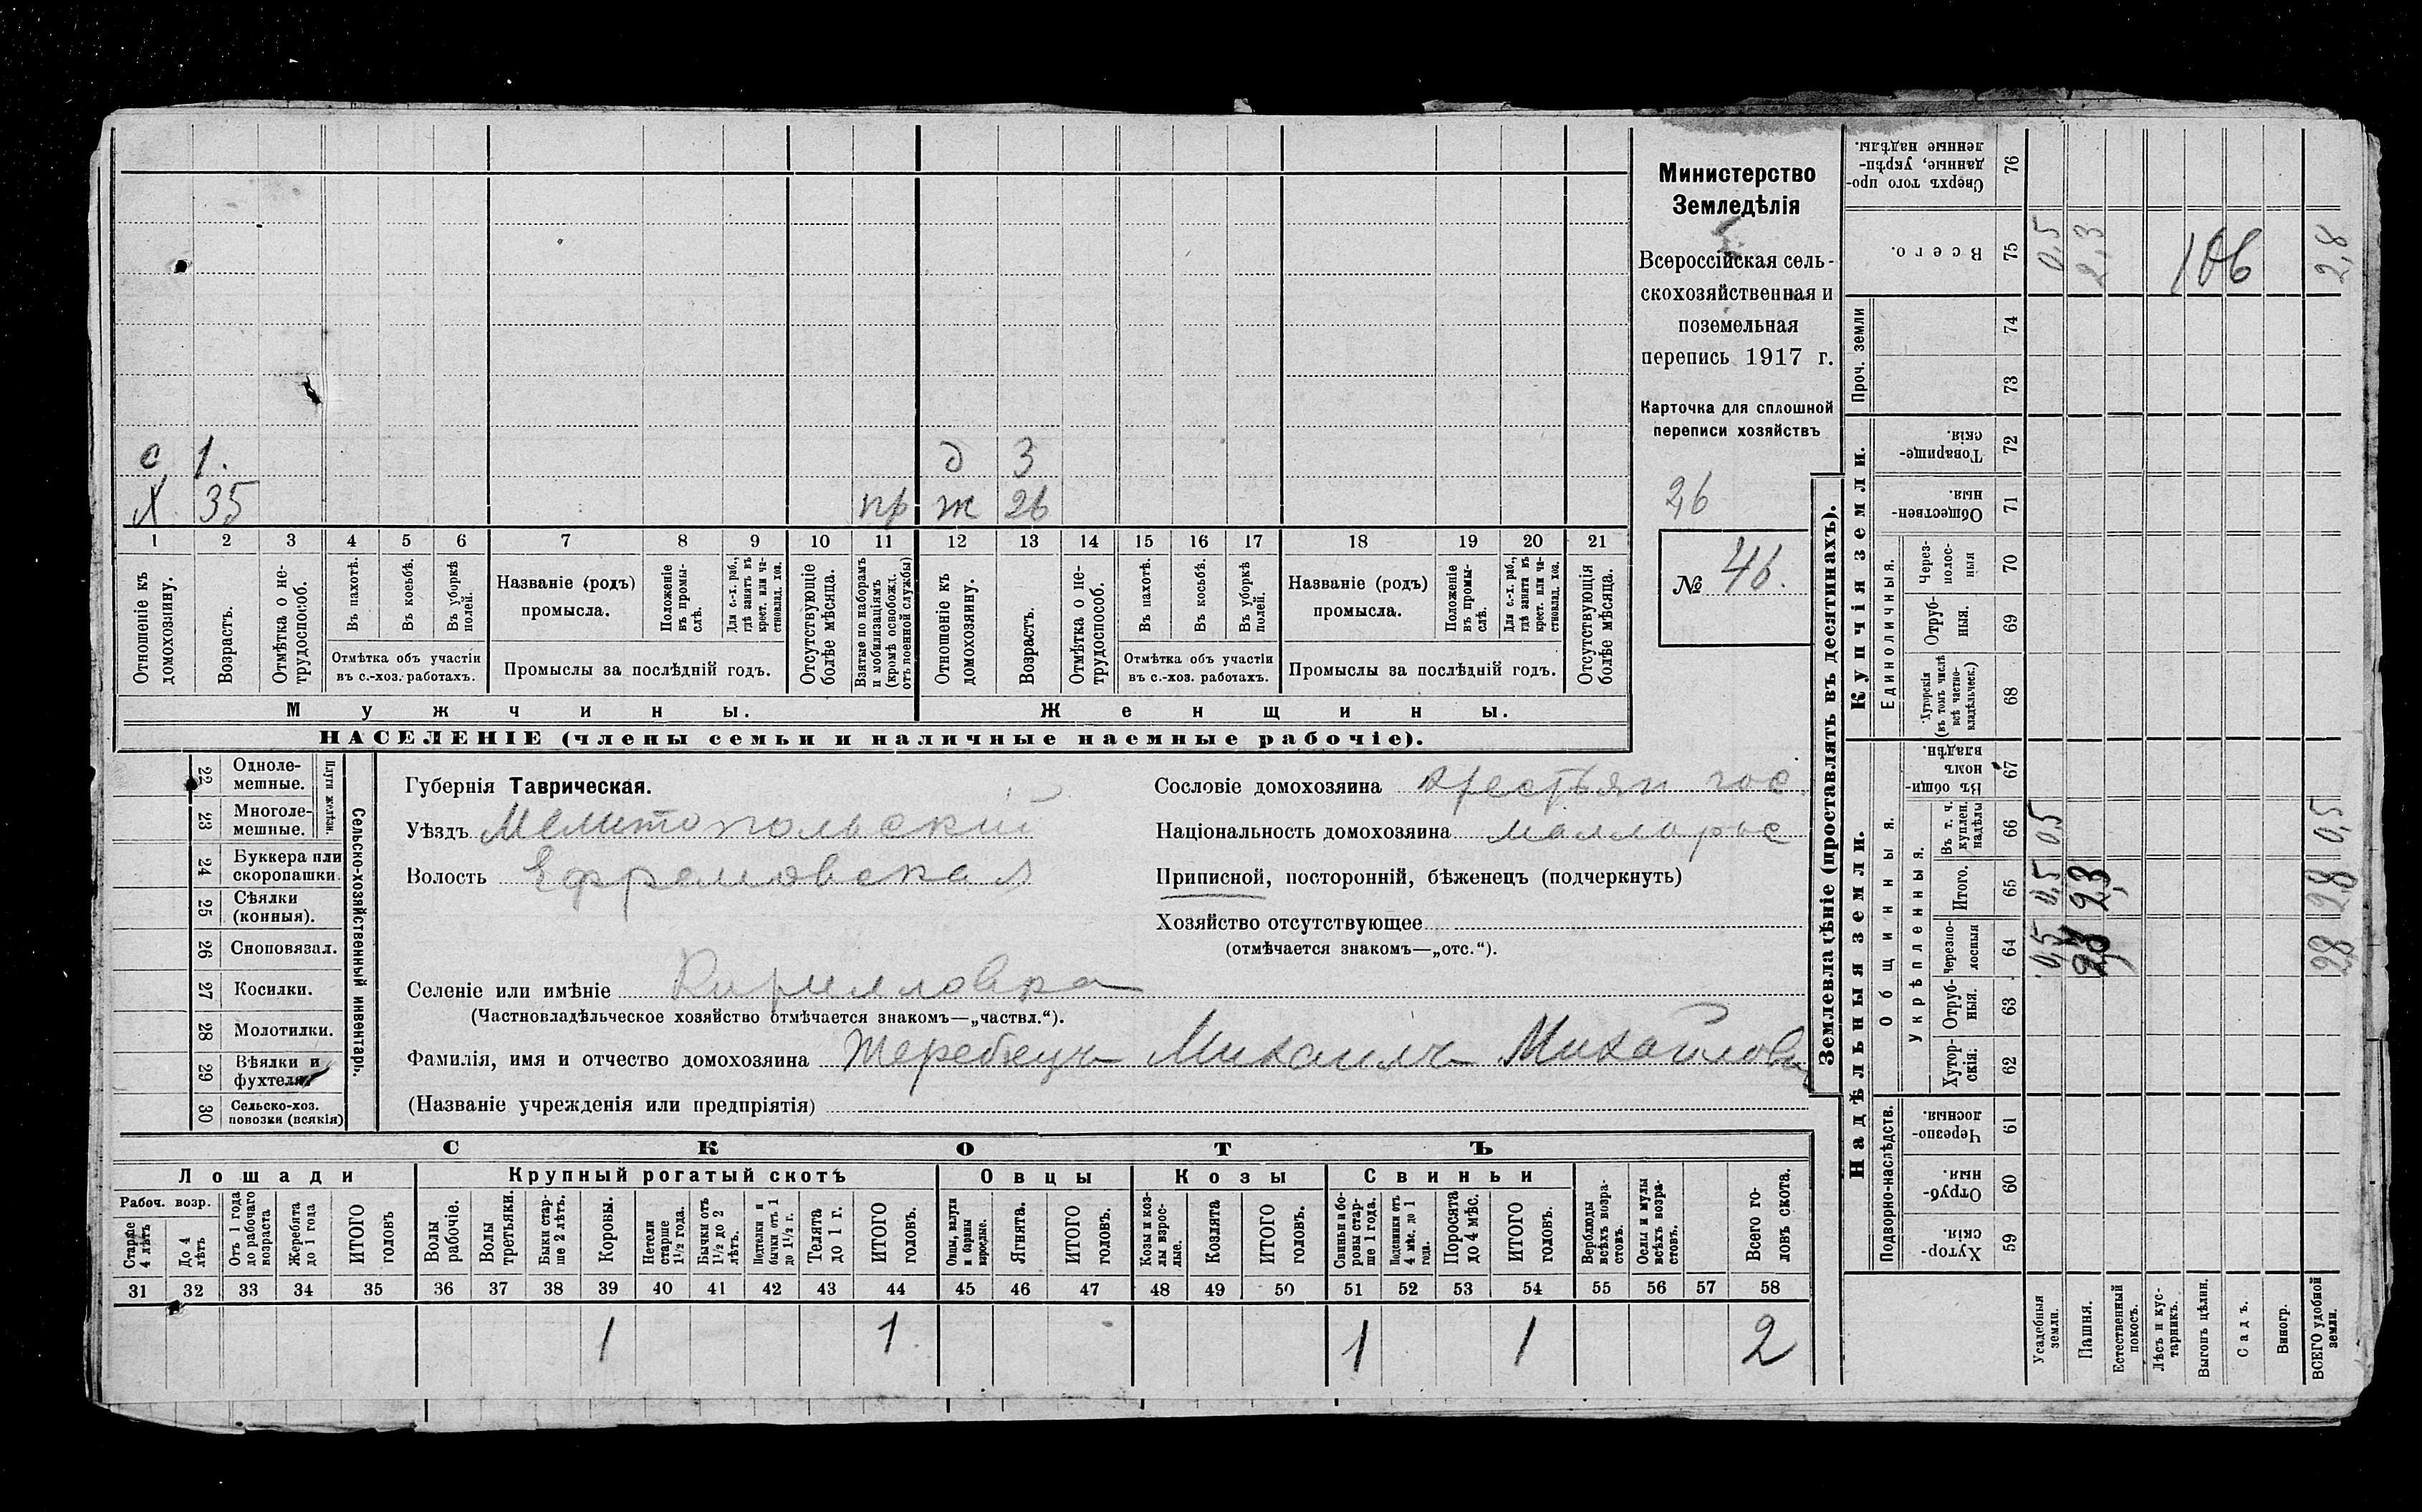 с 1. д 3
Х 35 пр ж 26
1 2 3 4 5 6 7 8 9 10 11 12 13 14 15 16 17 18 19 20 21
Отношеніе къ домохозяину.
Возрастъ.
Отмѣтка о нетрудоспособ.
Въ пахотѣ.
Въ косьбѣ.
Въ уборкѣ полей.
Отмѣтка объ участіи въ с.-хоз. работахъ.
Названіе (родъ) промысла.
Положеніе въ промыслѣ.
Для с.-х. раб., гдѣ занятъ въ крест. или частновлад. хоз.
Промыслы за послѣдній годъ.
Отсутствующіе болѣе мѣсяца.
Взятые по наборамъ и мобилизаціямъ (кромѣ освобожд. отъ военной службы)
Отношеніе къ домохозяину.
Возрастъ.
Отмѣтка о нетрудоспособ.
Въ пахотѣ.
Въ косьбѣ.
Въ уборкѣ полей.
Отмѣтка объ участіи въ с.-хоз. работахъ.
Названіе (родъ) промысла.
Положеніе въ промыслѣ.
Для с.-х. раб., гдѣ занята въ крест. или частновлад. хоз.
Промыслы за послѣдній годъ.
Отсутствующія болѣе мѣсяца.
Мужчины. Женщины.
НАСЕЛЕНІЕ (члены семьи и наличные наемные рабочіе).
Министерство
Земледѣлія
Всероссійская сель-
скохозяйственная и
поземельная
перепись 1917 г.
Карточка для сплошной
переписи хозяйствъ
26
№ 46.
22 Одноле-мешные.
23 Многоле-мешные.
Плуги желѣзн.
24 Буккера или скоропашки.
25 Сѣялки (конныя).
26 Сноповязал.
27 Косилки.
28 Молотилки.
29 Вѣялки и фухтеля.
30 Сельско-хоз. повозки (всякія)
Сельско-хозяйственный инвентарь.
Губернія Таврическая.
Уѣздъ Мелитопольскій
Волость Ефремовская
Сословіе домохозяина крестьян гос
Національность домохозяина малларос
Приписной, посторонній, бѣженецъ (подчеркнуть)
Хозяйство отсутствующее
(отмѣчается знакомъ—„отс.“).
Селеніе или имѣніе Кирилловка
(Частновладѣльческое хозяйство отмѣчается знакомъ—„частвл.“).
Фамилія, имя и отчество домохозяина Жеребецъ Михаилъ Михайлов
(Названіе учрежденія или предпріятія)
СКОТЪ
Лошади Крупный рогатый скотъ Овцы Козы Свиньи
Рабоч. возр.
Старше 4 лѣтъ
До 4 лѣтъ
Отъ 1 года до рабочаго возраста
Жеребята до 1 года
ИТОГО головъ
Волы рабочіе.
Волы третьяки.
Быки старше 2 лѣтъ.
Коровы.
Нетели старше 1½ года.
Бычки отъ 1½ до 2 лѣтъ.
Подтелки и бычки отъ 1 до 1½ г.
Телята до 1 г.
ИТОГО головъ.
Овцы, валухи и бараны взрослые.
Ягнята.
ИТОГО головъ.
Козы и козлы взрослые.
Козлята
ИТОГО головъ.
Свиньи и боровы старше 1 года.
Подсвинки отъ 4 мѣс. до 1 года.
Поросята до 4 мѣс.
ИТОГО головъ.
Верблюды всѣхъ возрастовъ.
Ослы и мулы всѣхъ возрастовъ.
Всего головъ скота.
31 32 33 34 35 36 37 38 39 40 41 42 43 44 45 46 47 48 49 50 51 52 53 54 55 56 57 58
1 1 1 1 2
Землевладѣніе (проставлять въ десятинахъ).
Надѣльныя земли. Купчія земли. Проч. земли
Подворно-наслѣдств. Общинныя. Укрѣпленныя. Единоличныя.
Сверхъ того проданные, укрѣпленные надѣлы. 76
Всего. 75 0,5 2,3 106 2,8
74
73
Товарищескія. 72
Общественныя. 71
Черезполосныя 70
Отрубныя. 69
Хуторскія (въ томъ числѣ всѣ частновладѣльческ.) 68
Въ общинномъ владѣн. 67
Въ т. ч. куплен. надѣлы 66 0,5 0,5
Итого. 65 0,5 2,3 2,8
Черезполосныя 64 0,5 2,3 2,8
Отрубныя. 63
Хуторскія. 62
Черезполосныя. 61
Отрубныя. 60
Хуторскія. 59
Усадебныя земли.
Пашня.
Естественный покосъ.
Лѣсъ и кустарникъ.
Выгонъ цѣлин.
Садъ.
Виногр.
ВСЕГО удобной земли.